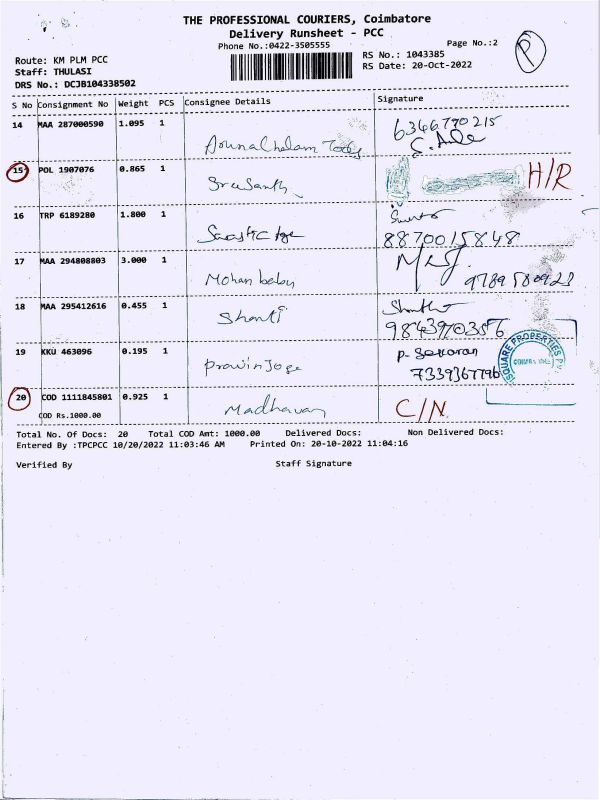 THE PROFESSIONAL COURIERS, Coimbatore
Delivery Runsheet - PCC
Phone No.:0422-3505555
Page No.:2
P
Route: KM PLM PCC
Staff: THULASI
DRS No.: DCJB104338502
RS No.: 1043385
RS Date: 20-Oct-2022
S No Consignment No Weight PCS Consignee Details Signature
14 MAA 287000590 1.095 1
6346770215
15 POL 1907076 0.865 1
H/R
16 TRP 6189280 1.800 1
8870015848
17 MAA 294808803 3.000 1
Mohan babu
18 MAA 295412616 0.455 1
Shanti
9843970356
19 KKU 463096 0.195 1
7339367796
SQUARE PROPERTIES
20 COD 1111845801 0.925 1
Madhavan
C/N
COD Rs.1000.00
Total No. Of Docs: 20 Total COD Amt: 1000.00 Delivered Docs: Non Delivered Docs:
Entered By :TPCPCC 10/20/2022 11:03:46 AM Printed On: 20-10-2022 11:04:16
Verified By Staff Signature